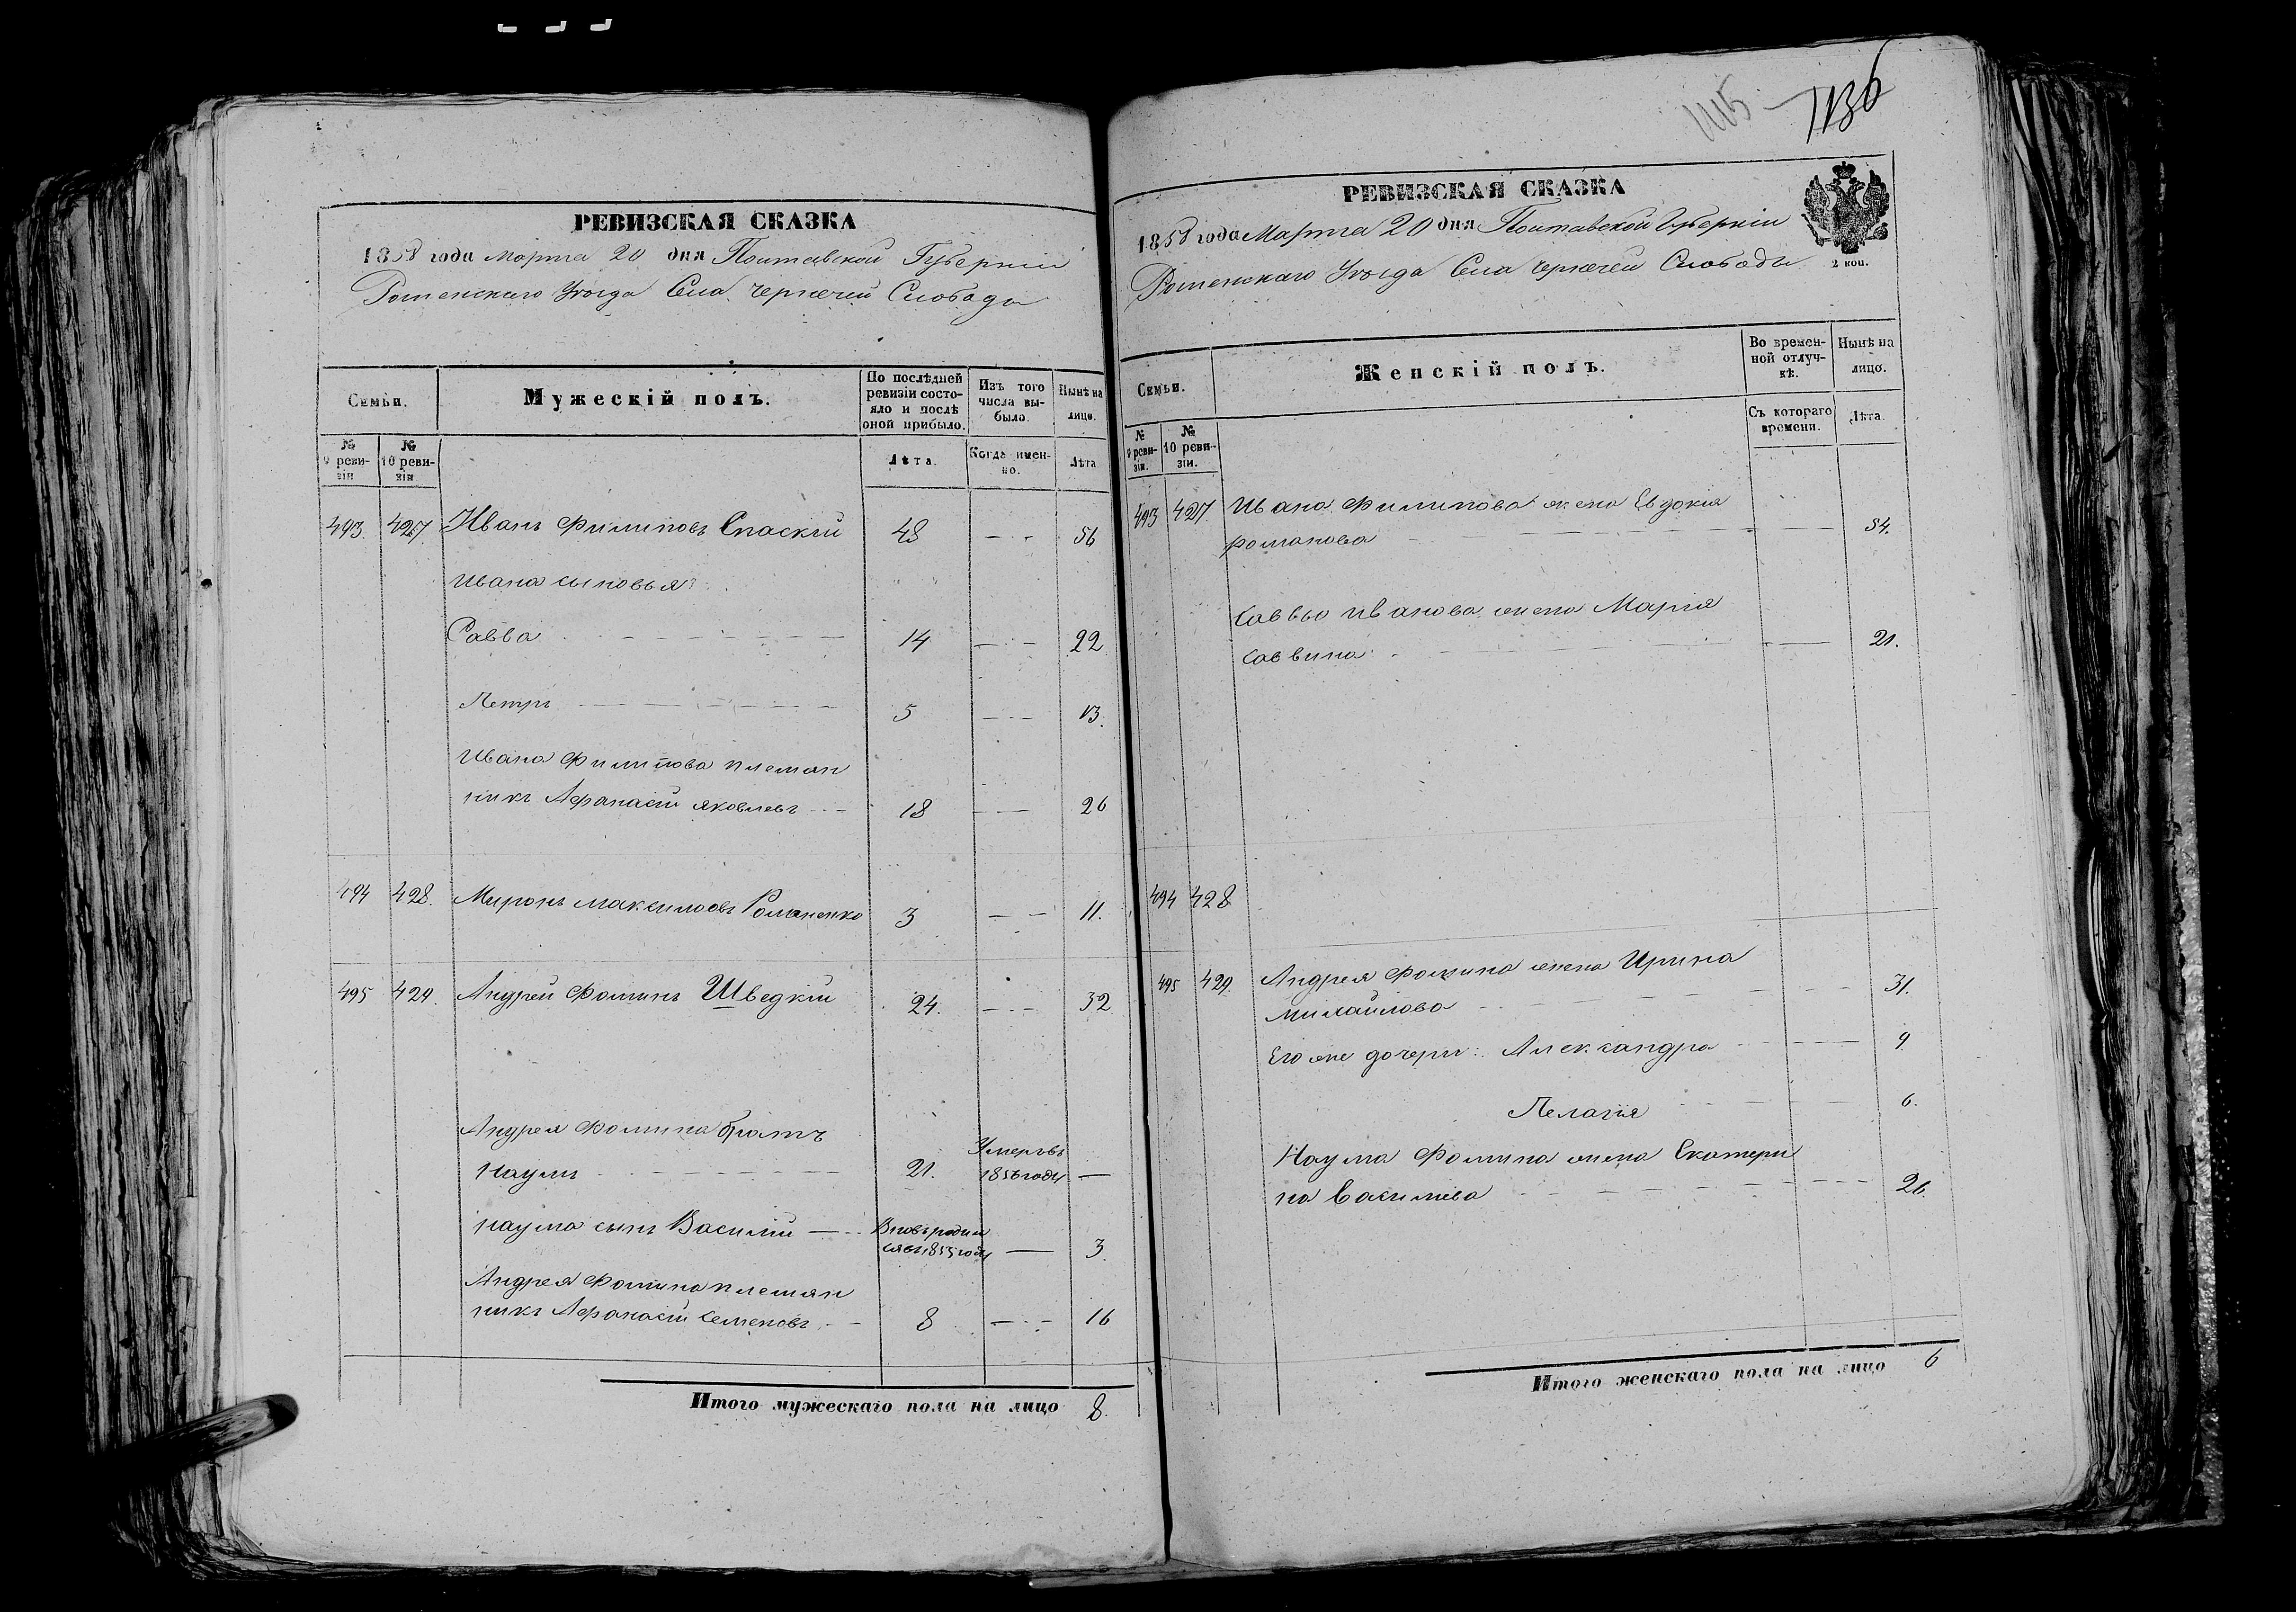 РЕВИЗСКАЯ СКАЗКА
1858 года марта 20 дня Полтавской Губерніи
Роменскаго Уѣзда Села Черкечей Слободы
Семьи.
Мужескій полъ.
По послѣдней
ревизіи состо-
яло и послѣ
оной прибыло.
Изъ того
числа вы-
было.
Нынѣ на
лицо.
№
9 реви-
зіи
№
10 реви-
зіи
Лѣта.
Когда имен-
но.
Лѣта
493. 427. Иванъ Филиповъ Спаскій 48 — 56
Ивана сыновья:
Савва 14 — 22
Петръ 5 — 13.
Ивана Филипова племян
никъ Афанасій Яковлевъ 18 — 26
494 428. Миронъ Максимовъ Романенко 3 — 11.
495 429. Андрей Фоминъ Шведкій 24. — 32
Андрея Фомина братъ
Наумъ 21. Умеръ въ 1856 году —
Наума сынъ Василій — Вновь родил
ся въ 1855 году — 3.
Андрея Фомина племян
никъ Афанасій Семеновъ 8 — 16
Итого мужескаго пола на лицо 8.
1136
РЕВИЗСКАЯ СКАЗКА
1858 года Марта 20 дня Полтавской Губерніи
Роменскаго Уѣзда Села Черкечей Слободы
2 коп.
Семьи.
Женскій полъ.
Во времен-
ной отлуч-
кѣ.
Нынѣ на
лицо.
№
9 реви-
зіи.
№
10 реви-
зіи.
Съ котораго
времени.
Лѣта.
493 427. Ивана Филипова жена Евдокия
Романова — 54.
Саввы Иванова жена Мария
Саввина — 21.
494 428
495 429. Андрея Фомина жена Ирина
Михайлова — 31.
Его же дочери: Александра — 9.
Пелагія — 6.
Наума Фомина жена Екатери
на Васильева — 26.
Итого женскаго пола на лицо 6